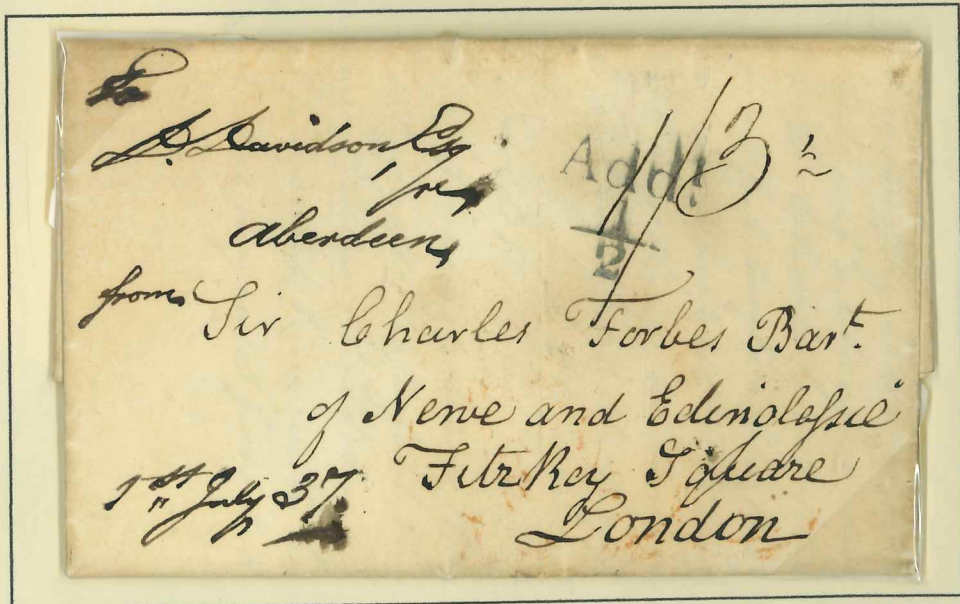 To
D. Davidson Esq
re
Aberdeen
from
Add!
1
2
1/3 ½
Sir Charles Forbes Bart.
of Newe and Edinglassie
FitzRoy Square
London
1st July 37